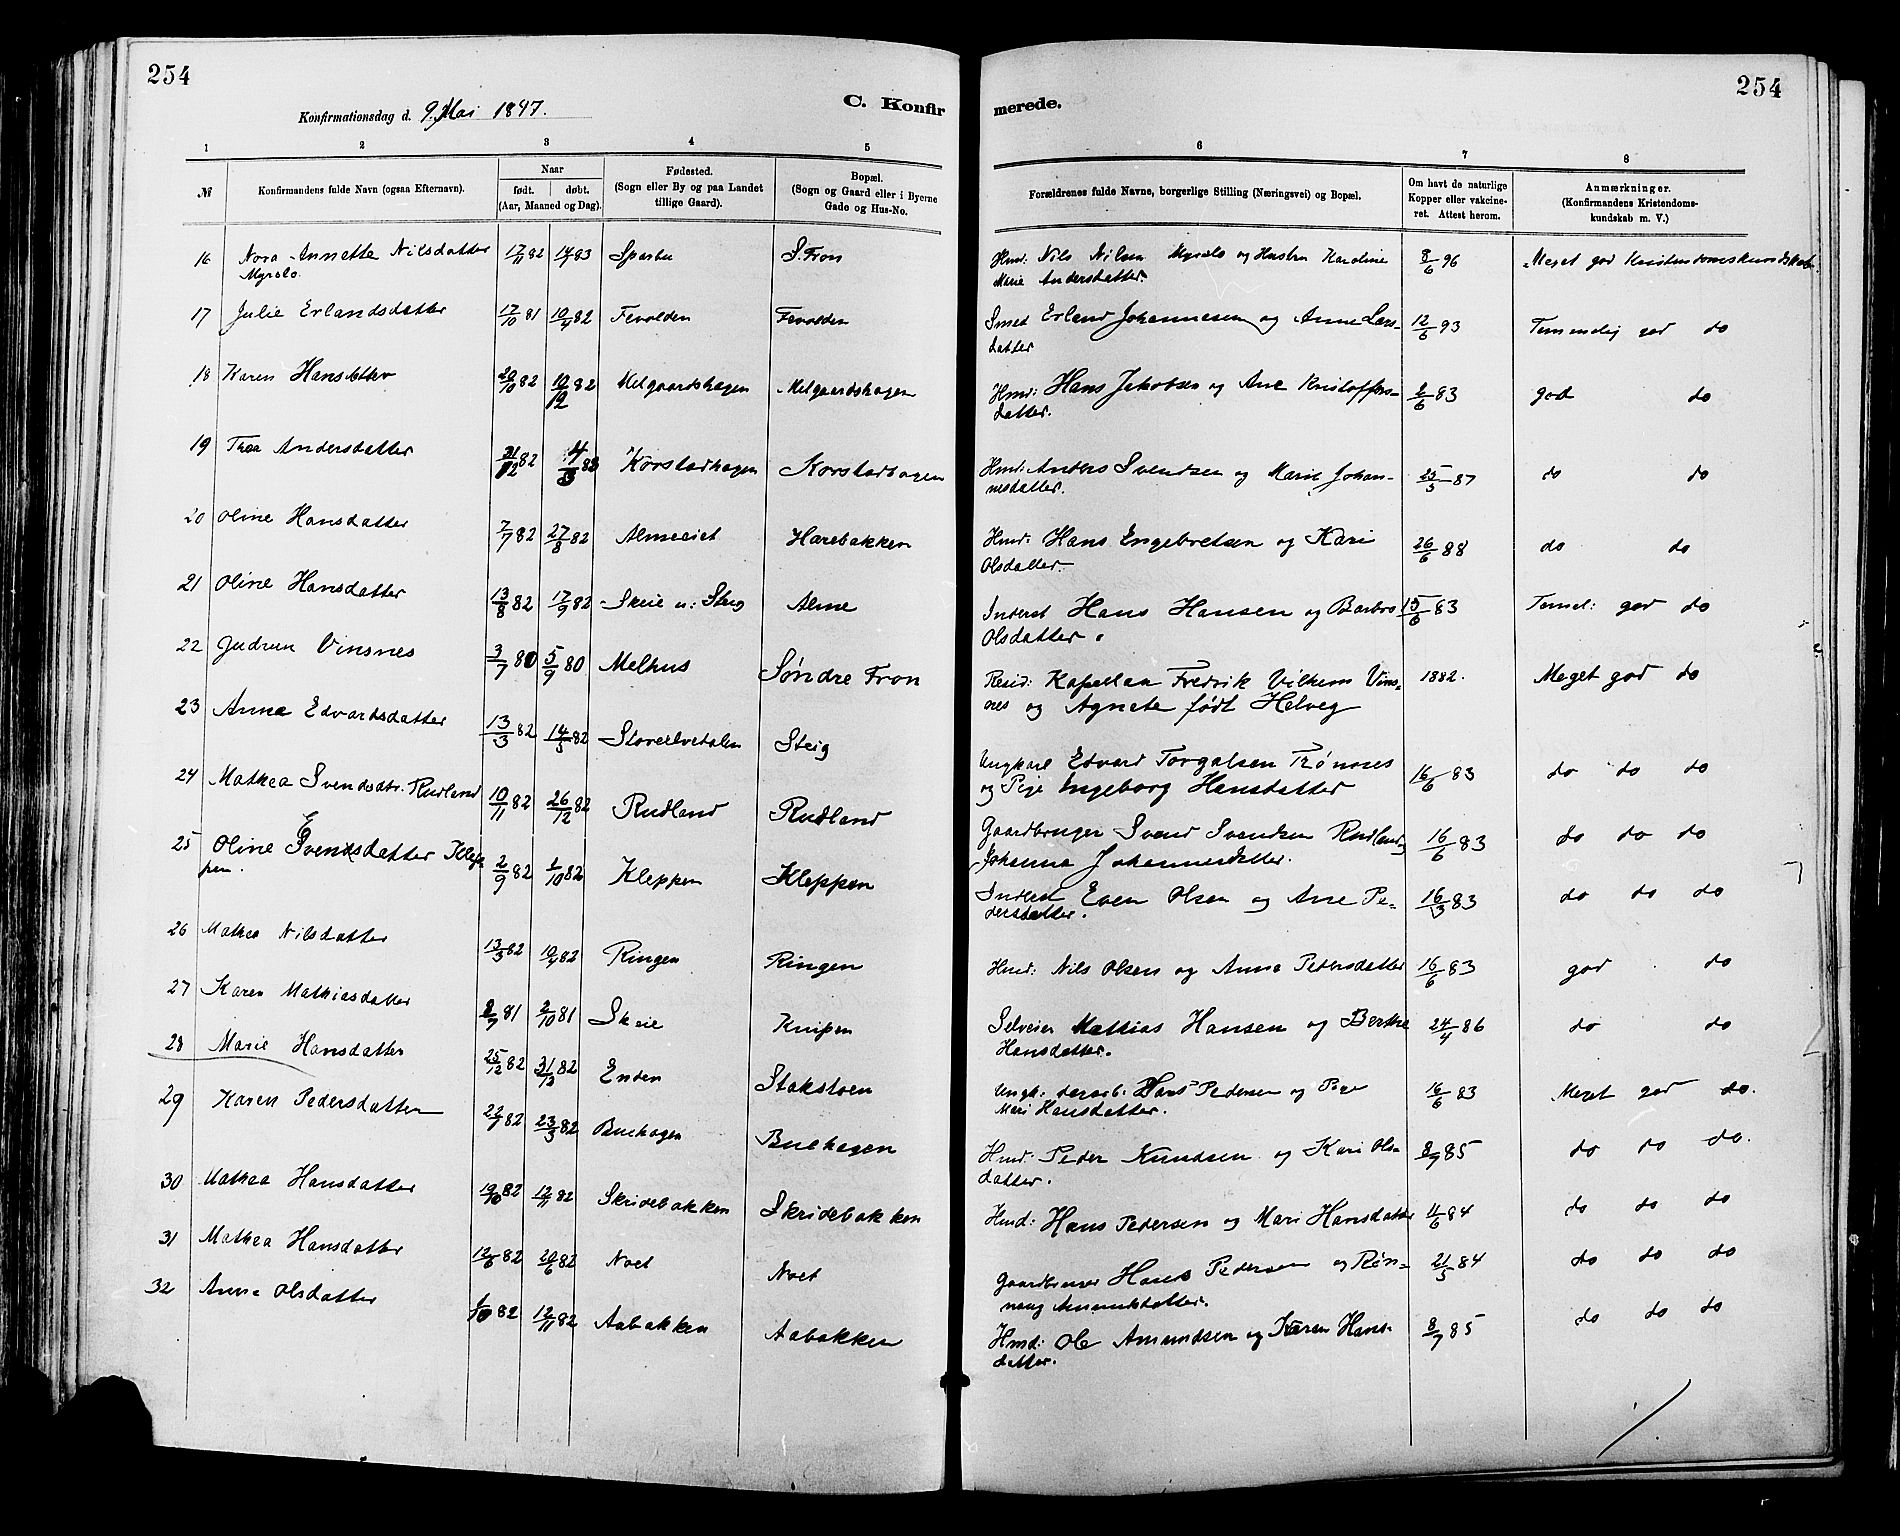 254
254
Konfirmationsdag d. 9. Mai 1897.
C. Konfir
merede.
1 2 3 4 5 6 7 8
№ Konfirmandens fulde Navn (ogsaa Efternavn). Naar født. døbt. (Aar, Maaned og Dag). Fødested. (Sogn eller By og paa Landet tillige Gaard). Bopæl. (Sogn og Gaard eller i Byerne Gade og Hus-No. Forældrenes fulde Navne, borgerlige Stilling (Næringsvei) og Bopæl. Om havt de naturlige Kopper eller vakcineret. Attest herom. Anmærkninger. (Konfirmandens Kristendomskundskab m. V.)
16 Nora Annette Nilsdatter 17/11 82 14/1 83 S. Fron Hmd: Nils Nilsen Myrslo og Hustru Karoline 8/6 96 Meget god Kristendomskundskab.
Myrslo. Marie Andersdatter.
17 Julie Erlandsdatter 17/10 81 10/4 82 Fevolden Fevolden Smed Erland Johannesen og Anne Lars- 12/6 93 Temmelig god do
datter
18 Karen Hansdatter 20/10 82 10/12 82 Melgaardshagen Melgaardshagen Hmd: Hans Jakobsen og Ane Kristoffers- 2/6 83 god do
datter.
19 Thea Andersdatter 31/12 82 4/3 83 Korstadhagen Korstadhagen Hmd: Anders Svendsen og Marie Johan- 25/5 87 do do
nesdatter.
20 Oline Hansdatter 7/7 82 27/8 82 Almeeiet Harebakken Hmd: Hans Engebretsen og Kari 26/6 88 do do
Olsdatter
21 Oline Hansdatter 13/8 82 17/9 82 Skeie u: Steig Alme Inderst Hans Hansen og Barbro 15/6 83 Temel: god do
Olsdatter.
22 Gudrun Vinsnes 3/7 80 5/9 80 Melhus Søndre Fron Resid: Kapellan Fredrik Vilhem Vins- 1882. Meget god do
nes og Agnete født Helveg
23 Anne Edvardsdatter 13/3 82 14/5 82 Steig Ungkarl Edvard Torgalsen Trønnes 16/6 83 do do do
og Pige Ingeborg Hansdatter
24 Mathea Svendsdtr. Rudland 10/11 82 26/12 82 Rudland Rudland Gaardbruger Svend Svendsen Rudland og 16/6 83 do do do
Johanna Johannesdatter.
25 Oline Evensdatter Klep- 2/9 82 1/10 82 Kleppen Kleppen Inderst Even Olsen og Ane Pe- 16/3 83 do do do
pen. dersdatter.
26 Mathea Nilsdatter 13/3 82 10/4 82 Ringen Ringen Hmd: Nils Olsen og Anne Pedersdatter 16/6 83 god do
27 Karen Mathiasdatter 8/7 81 2/10 81 Skeie Knipen Selveier Mathias Hansen og Berthe 24/4 86 do do
Hansdatter.
28 Marie Hansdatter 25/12 82 31/12 82 Enden Stakstoen Ungk: Hans Pedersen og Pige 16/6 83 Meget god do.
Mari Hansdatter.
29 Karen Pedersdatter 22/1 82 23/3 82 Buehagen Buehagen Hmd: Peder Knudsen og Kari Ols- 8/9 85 do do do.
datter.
30 Mathea Hansdatter 19/10 82 12/11 82 Skridebakken Skridebakken Hmd: Hans Pedersen og Mari Hansdatter 11/6 84 do do do
31 Mathea Hansdatter 82 20/6 82 Noet Noet Gaardbruger Hans Pedersen og Røn- 21/5 84 do do do
naug Amundsdatter.
32 Anne Olsdatter 1/10 82 12/11 82 Aabakken Aabakken Hmd: Ole Amundsen og Karen Hans- 8/7 85 do do do
datter.